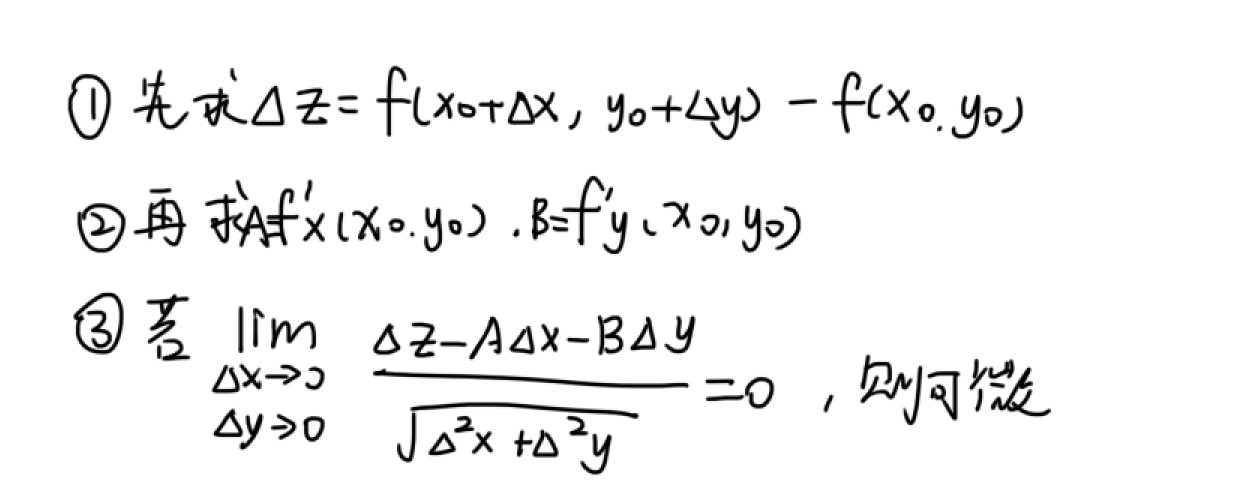 ① 先求Δz=f(x₀+Δx, y₀+Δy) - f(x₀.y₀)
② 再求A=f'x(x₀.y₀).B=f'y(x₀,y₀)
③ 若 lim Δx→0 Δy→0 (Δz-AΔx-BΔy)/√(Δ²x+Δ²y) =0 , 则可微